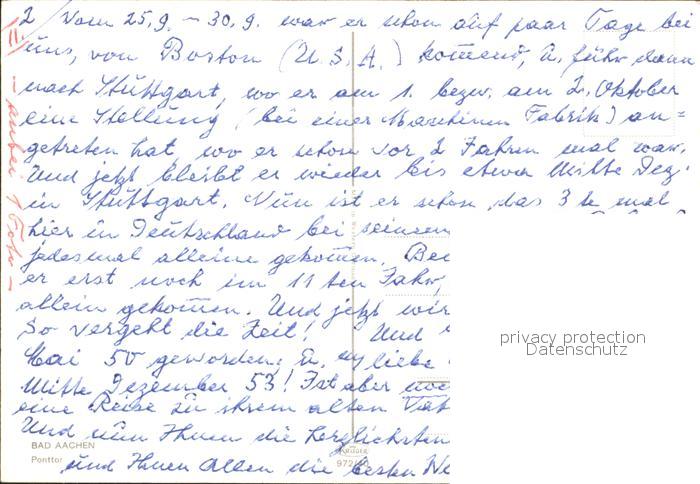 2/ Vom 25.9. – 30.9. war er schon auf paar Tage bei
uns, von Boston (U.S.A.) komend, u. fuhr dann
nach Stuttgart, wo er am 1. bezw. am 2. Oktober
eine Stellung (bei einer Maschinen Fabrik) an=
getreten hat, wo er schon vor 2 Jahren mal war.
Und jetzt bleibt er wieder bis etwa Mitte Dez.
in Stuttgart. Nun ist er schon das 3te mal
hier in Deutschland bei seinem
jedesmal alleine gekomen. Bei
er erst noch im 11ten Jahr,
allein gekomen. Und jetzt wir
So vergeht die Zeit! Und
Mai 50 geworden; u. liebe
Mitte Dezember 53! Ist aber noch
eine Reise zu ihrem alten Vat
Und nun Ihnen die herzlichsten
und Ihnen Allen die besten We
– anbei 1 Foto –
BAD AACHEN
Ponttor
Krüger
972/
privacy protection
Datenschutz